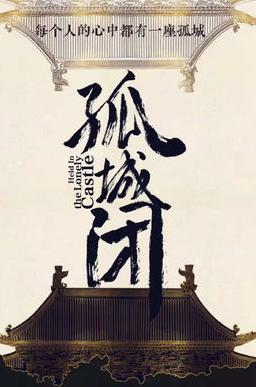 每个人的心中都有一座孤城
孤城闭
Held In
the Lonely
Castle